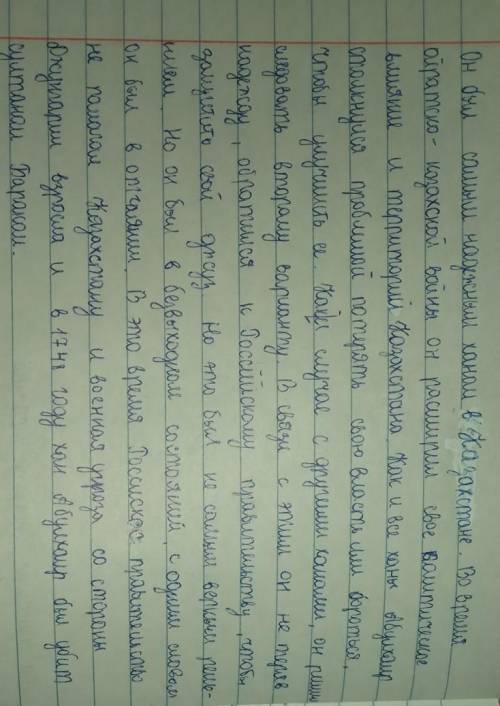 Он был самым надежным ханом в Казахстане. Во время
ойратско-казахской войны он расширил свое политическое
влияние и территорий Казахстана. Как и все ханы Абулхаир
столкнулся проблемой потерять свою власть или бороться,
чтобы улучшить ее. Как случае с другими ханами, он решил
следовать второму варианту. В связи с этим он не теряв
надежду, обратился к Российскому правительству, чтобы
защитить свой джуз. Но это был не самым верным реше-
нием. Но он был в безвыходном состояний, с одним словом
он был в отчаянии. В это время Россиское правительство
не помагал Казахстану и военная угроза со стороны
Джунгарии взросла и в 1748 году хан Абулхаир был убит
султаном Бараком.